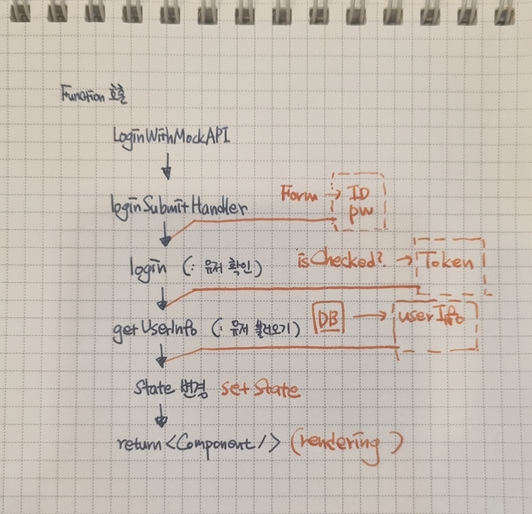 Function 호출
LoginWithMockAPI
loginSubmitHandler
Form → ID
pw
login (: 유저 확인)
isChecked? → Token
getUserInfo (: 유저 불러오기)
DB → userInfo
State 변경 set State
return <Component/> (rendering)